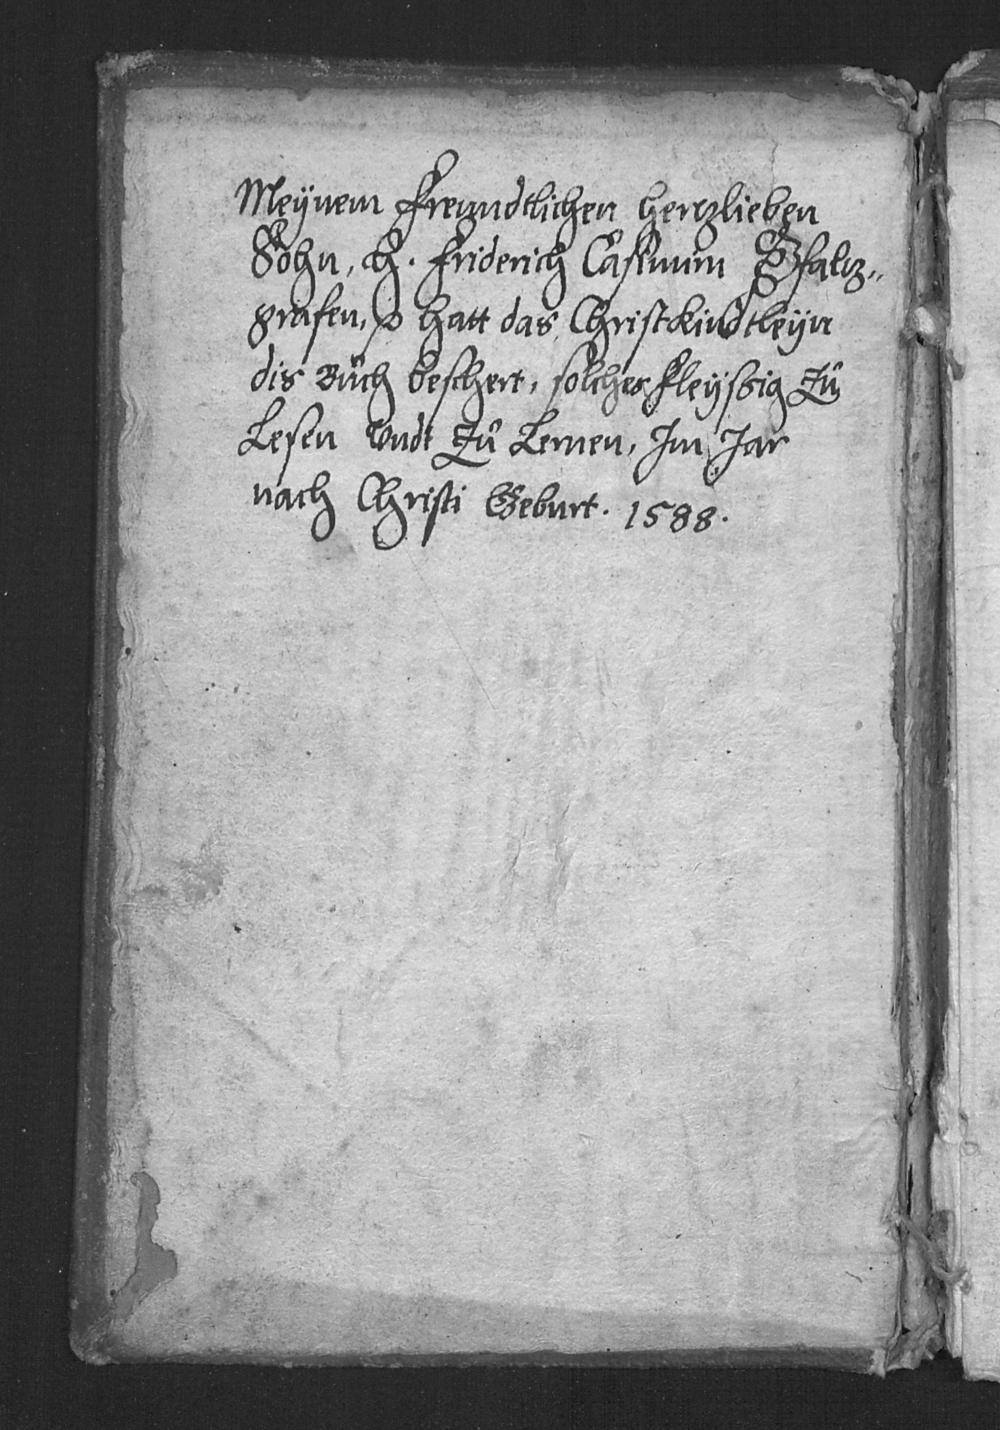 Meÿnem Freundtlichen hertzlieben
Sohn, H. Friderich Casimirn Pfaltz„
grafen, hatt das Christkindtleÿn
dis Bůch beschert, solches fleÿssig Zů
Lesen Vndt Zů Lernen, Im Jar
nach Christi Geburt. 1588.